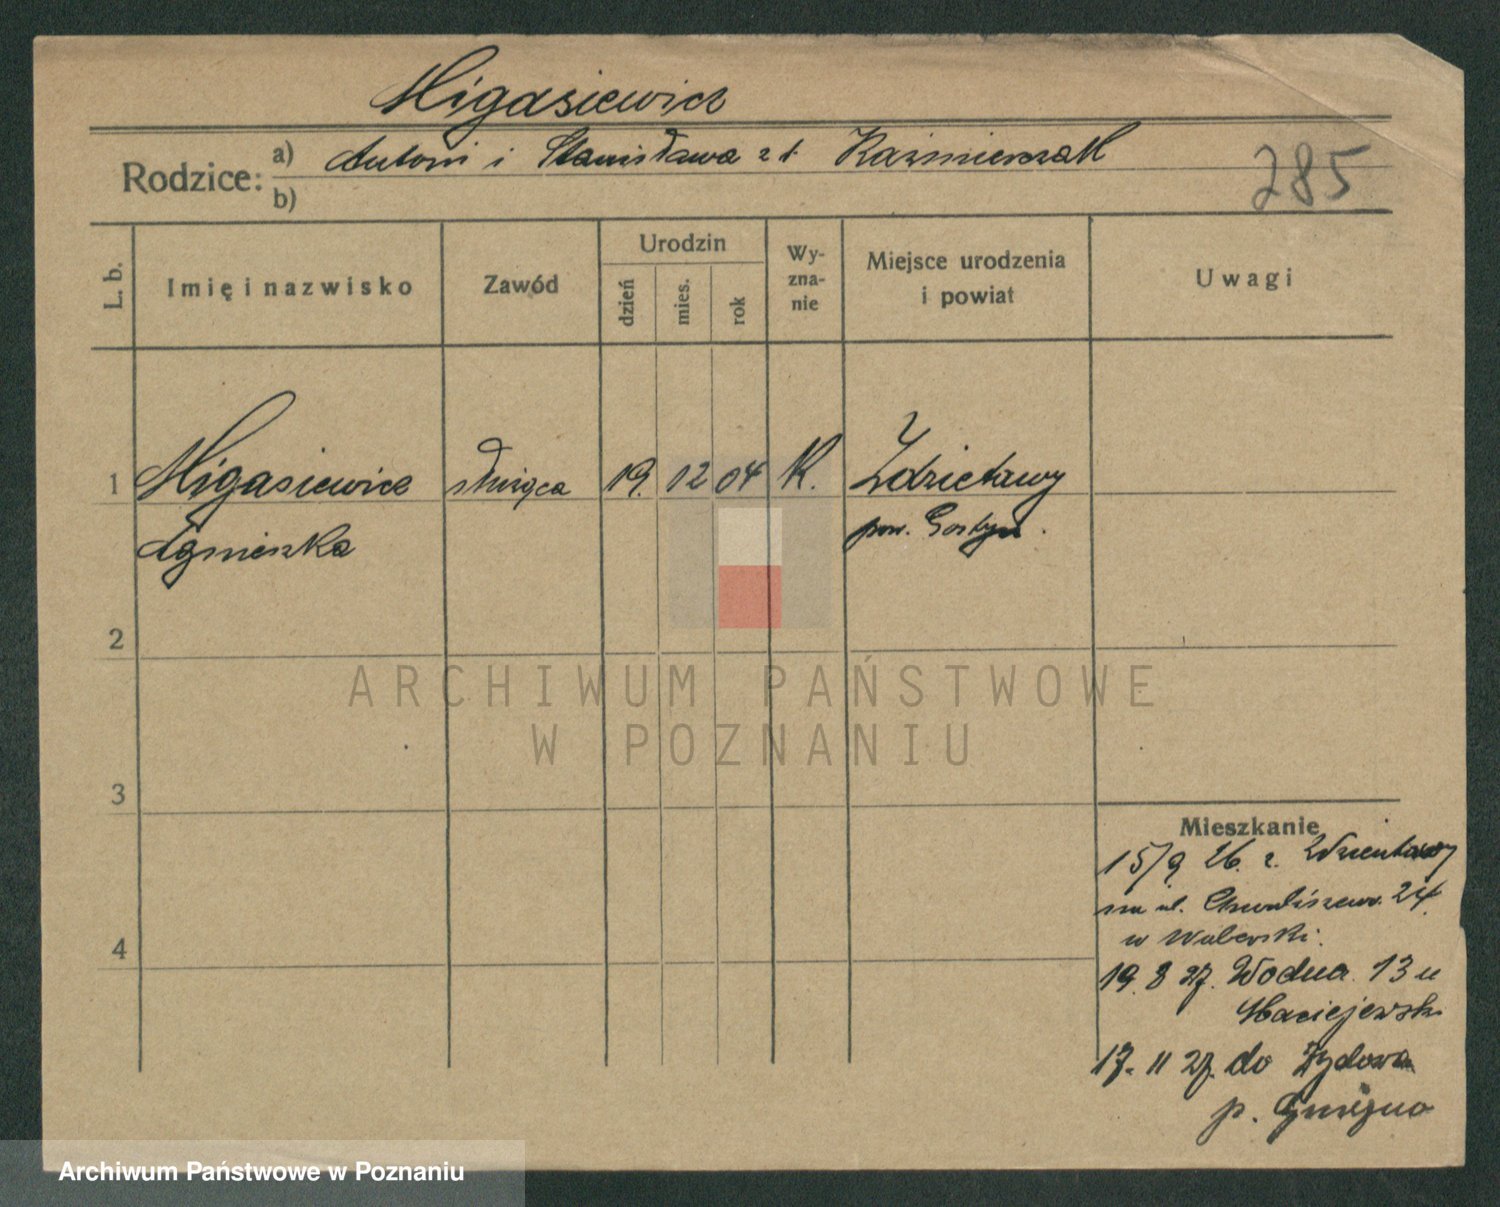 Migasiewicz
Rodzice: a) Antoni i Stanisława z d. Kaźmierczak
b)
285
L. b.
Imię i nazwisko
Zawód
Urodzin
dzień
mies.
rok
Wy-
zna-
nie
Miejsce urodzenia
i powiat
Uwagi
1 Migasiewicz służąca 19. 12 04 K. Zdzietawy
Agnieszka pow. Gostyń.
2
3
4
Mieszkanie
15/9 26. z
na ul. Chwaliszewo 24
u Waberski.
19. 8 27. Wodna 13 u
Maciejewsk
17. 11 27. do Żydowa
p. Gniezno
ARCHIWUM PAŃSTWOWE
W POZNANIU
Archiwum Państwowe w Poznaniu